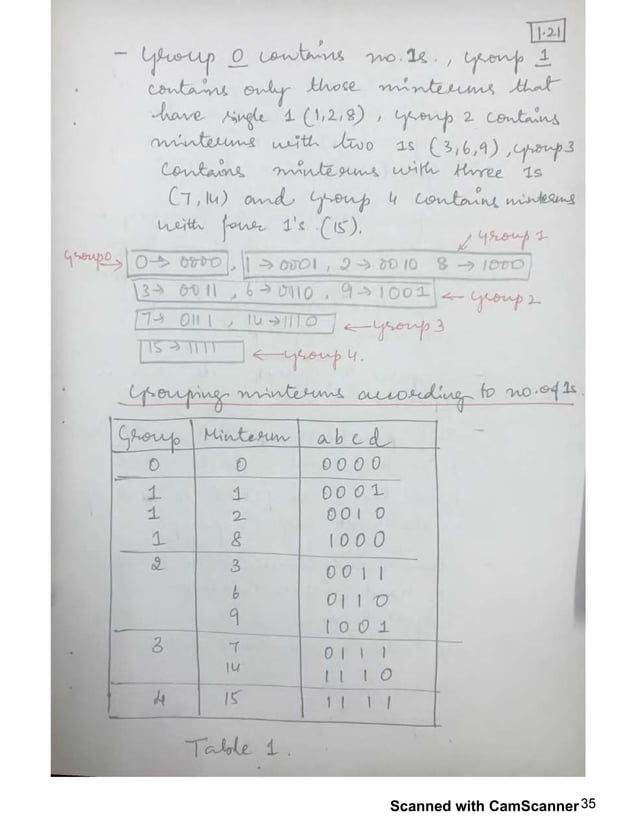 1.21
- Group 0 contains no. 1s., group 1
contains only those minterms that
have single 1 (1,2,8), group 2 contains
minterms with two 1s (3,6,9), group 3
contains minterms with three 1s
(7,14) and group 4 contains minterms
with four 1's (15).
group 1
Group 0 → 0 → 0000, 1 → 0001, 2 → 0010 8 → 1000
3 → 0011, 6 → 0110, 9 → 1001 ← group 2
7 → 0111, 14 → 1110 ← group 3
15 → 1111 ← group 4.
Grouping minterms according to no. of 1s.
Group Minterm a b c d
0 0 0 0 0 0
1 1 0 0 0 1
1 2 0 0 1 0
1 8 1 0 0 0
2 3 0 0 1 1
6 0 1 1 0
9 1 0 0 1
3 7 0 1 1 1
14 1 1 1 0
4 15 1 1 1 1
Table 1.
Scanned with CamScanner 35